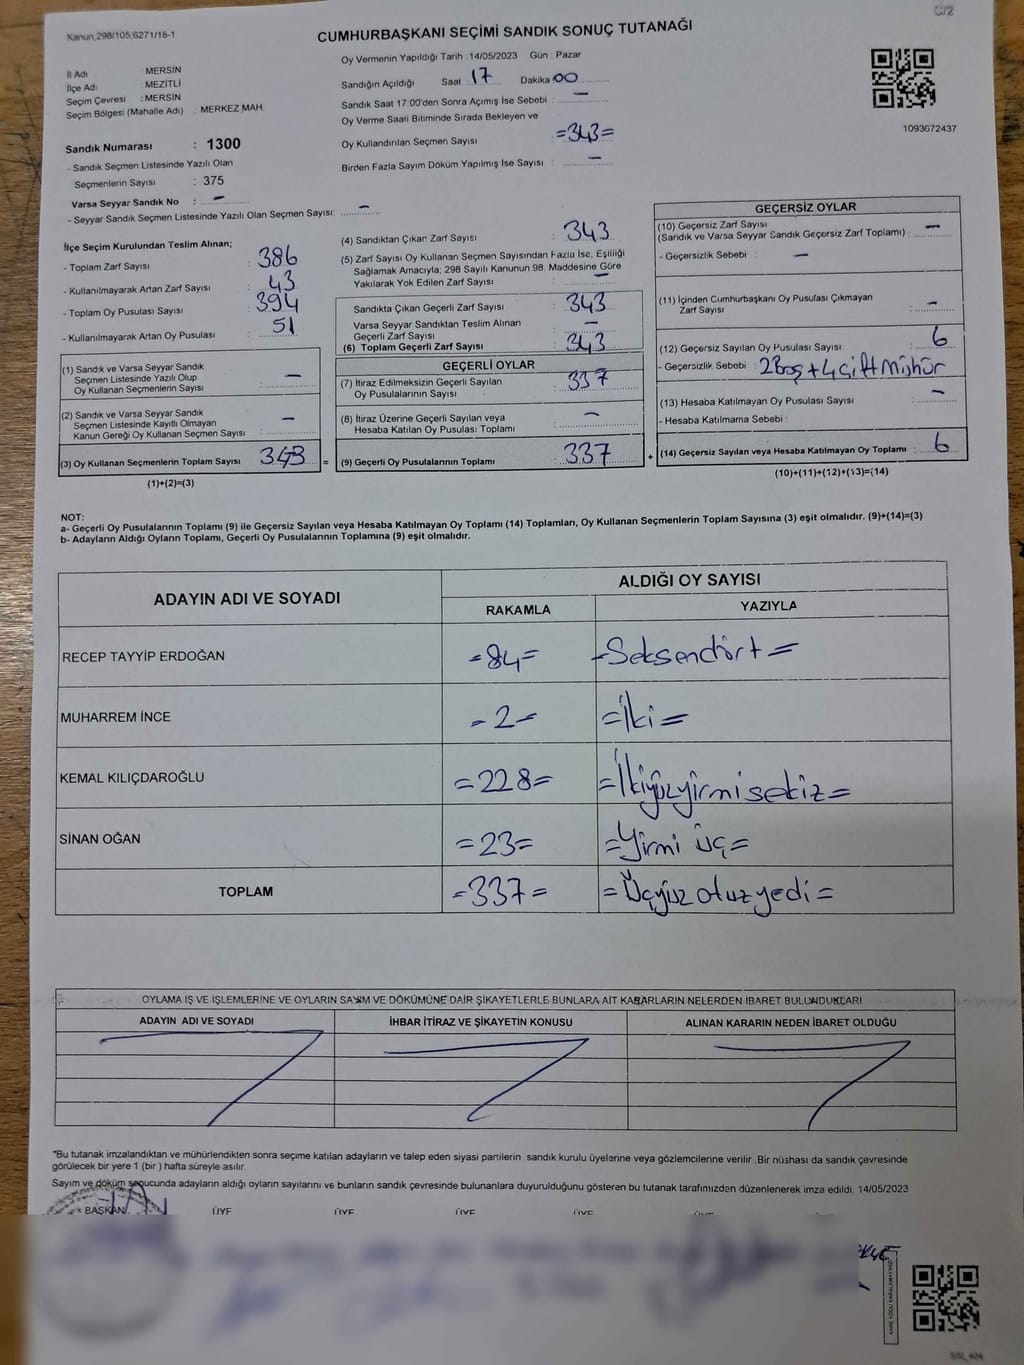 Kanun,298/105,6271/16-1
C/2
CUMHURBAŞKANI SEÇİMİ SANDIK SONUÇ TUTANAĞI
İl Adı : MERSİN
İlçe Adı : MEZİTLİ
Seçim Çevresi : MERSİN
Seçim Bölgesi (Mahalle Adı) : MERKEZ MAH.
Sandık Numarası : 1300
- Sandık Seçmen Listesinde Yazılı Olan
Seçmenlerin Sayısı : 375
Varsa Seyyar Sandık No : -
- Seyyar Sandık Seçmen Listesinde Yazılı Olan Seçmen Sayısı: -
Oy Vermenin Yapıldığı Tarih :14/05/2023 Gün : Pazar
Sandığın Açıldığı Saat : 17 Dakika 00
Sandık Saat 17.00'den Sonra Açılmış İse Sebebi : -
Oy Verme Saati Bitiminde Sırada Bekleyen ve
Oy Kullandırılan Seçmen Sayısı : =343=
Birden Fazla Sayım Döküm Yapılmış İse Sayısı : -
1093672437
İlçe Seçim Kurulundan Teslim Alınan;
- Toplam Zarf Sayısı : 386
- Kullanılmayarak Artan Zarf Sayısı : 43
- Toplam Oy Pusulası Sayısı : 394
- Kullanılmayarak Artan Oy Pusulası : 51
(1) Sandık ve Varsa Seyyar Sandık
Seçmen Listesinde Yazılı Olup
Oy Kullanan Seçmenlerin Sayısı : -
(2) Sandık ve Varsa Seyyar Sandık
Seçmen Listesinde Kayıtlı Olmayan
Kanun Gereği Oy Kullanan Seçmen Sayısı : -
(3) Oy Kullanan Seçmenlerin Toplam Sayısı : 343 =
(1)+(2)=(3)
(4) Sandıktan Çıkan Zarf Sayısı : 343
(5) Zarf Sayısı Oy Kullanan Seçmen Sayısından Fazla İse, Eşitliği
Sağlamak Amacıyla; 298 Sayılı Kanunun 98. Maddesine Göre
Yakılarak Yok Edilen Zarf Sayısı : -
Sandıkta Çıkan Geçerli Zarf Sayısı : 343
Varsa Seyyar Sandıktan Teslim Alınan
Geçerli Zarf Sayısı : -
(6) Toplam Geçerli Zarf Sayısı : 343
GEÇERLİ OYLAR
(7) İtiraz Edilmeksizin Geçerli Sayılan
Oy Pusulalarının Sayısı : 337
(8) İtiraz Üzerine Geçerli Sayılan veya
Hesaba Katılan Oy Pusulası Toplamı : -
(9) Geçerli Oy Pusulalarının Toplamı : 337 +
GEÇERSİZ OYLAR
(10) Geçersiz Zarf Sayısı
(Sandık ve Varsa Seyyar Sandık Geçersiz Zarf Toplamı) : -
- Geçersizlik Sebebi : -
(11) İçinden Cumhurbaşkanı Oy Pusulası Çıkmayan
Zarf Sayısı : -
(12) Geçersiz Sayılan Oy Pusulası Sayısı : 6
- Geçersizlik Sebebi : 2 Boş + 4 Çift Mühür
(13) Hesaba Katılmayan Oy Pusulası Sayısı : -
- Hesaba Katılmama Sebebi :
(14) Geçersiz Sayılan veya Hesaba Katılmayan Oy Toplamı : 6
(10)+(11)+(12)+(13)=(14)
NOT:
a- Geçerli Oy Pusulalarının Toplamı (9) ile Geçersiz Sayılan veya Hesaba Katılmayan Oy Toplamı (14) Toplamları, Oy Kullanan Seçmenlerin Toplam Sayısına (3) eşit olmalıdır. (9)+(14)=(3)
b- Adayların Aldığı Oyların Toplamı, Geçerli Oy Pusulalarının Toplamına (9) eşit olmalıdır.
ADAYIN ADI VE SOYADI
ALDIĞI OY SAYISI
RAKAMLA YAZIYLA
RECEP TAYYİP ERDOĞAN =84= =Seksendört=
MUHARREM İNCE =2= =İki=
KEMAL KILIÇDAROĞLU =228= =İkiyüzyirmisekiz=
SİNAN OĞAN =23= =Yirmi üç=
TOPLAM =337= =Üçyüzotuzyedi=
OYLAMA İŞ VE İŞLEMLERİNE VE OYLARIN SAYIM VE DÖKÜMÜNE DAİR ŞİKAYETLERLE BUNLARA AİT KARARLARIN NELERDEN İBARET BULUNDUKLARI
ADAYIN ADI VE SOYADI İHBAR İTİRAZ VE ŞİKAYETİN KONUSU ALINAN KARARIN NEDEN İBARET OLDUĞU
*Bu tutanak imzalandıktan ve mühürlendikten sonra seçime katılan adayların ve talep eden siyasi partilerin sandık kurulu üyelerine veya gözlemcilerine verilir .Bir nüshası da sandık çevresinde
görülecek bir yere 1 (bir ) hafta süreyle asılır.
Sayım ve döküm sonucunda adayların aldığı oyların sayılarını ve bunların sandık çevresinde bulunanlara duyurulduğunu gösteren bu tutanak tarafımızdan düzenlenerek imza edildi. 14/05/2023
BAŞKAN ÜYE ÜYE ÜYE ÜYE ÜYE ÜYE